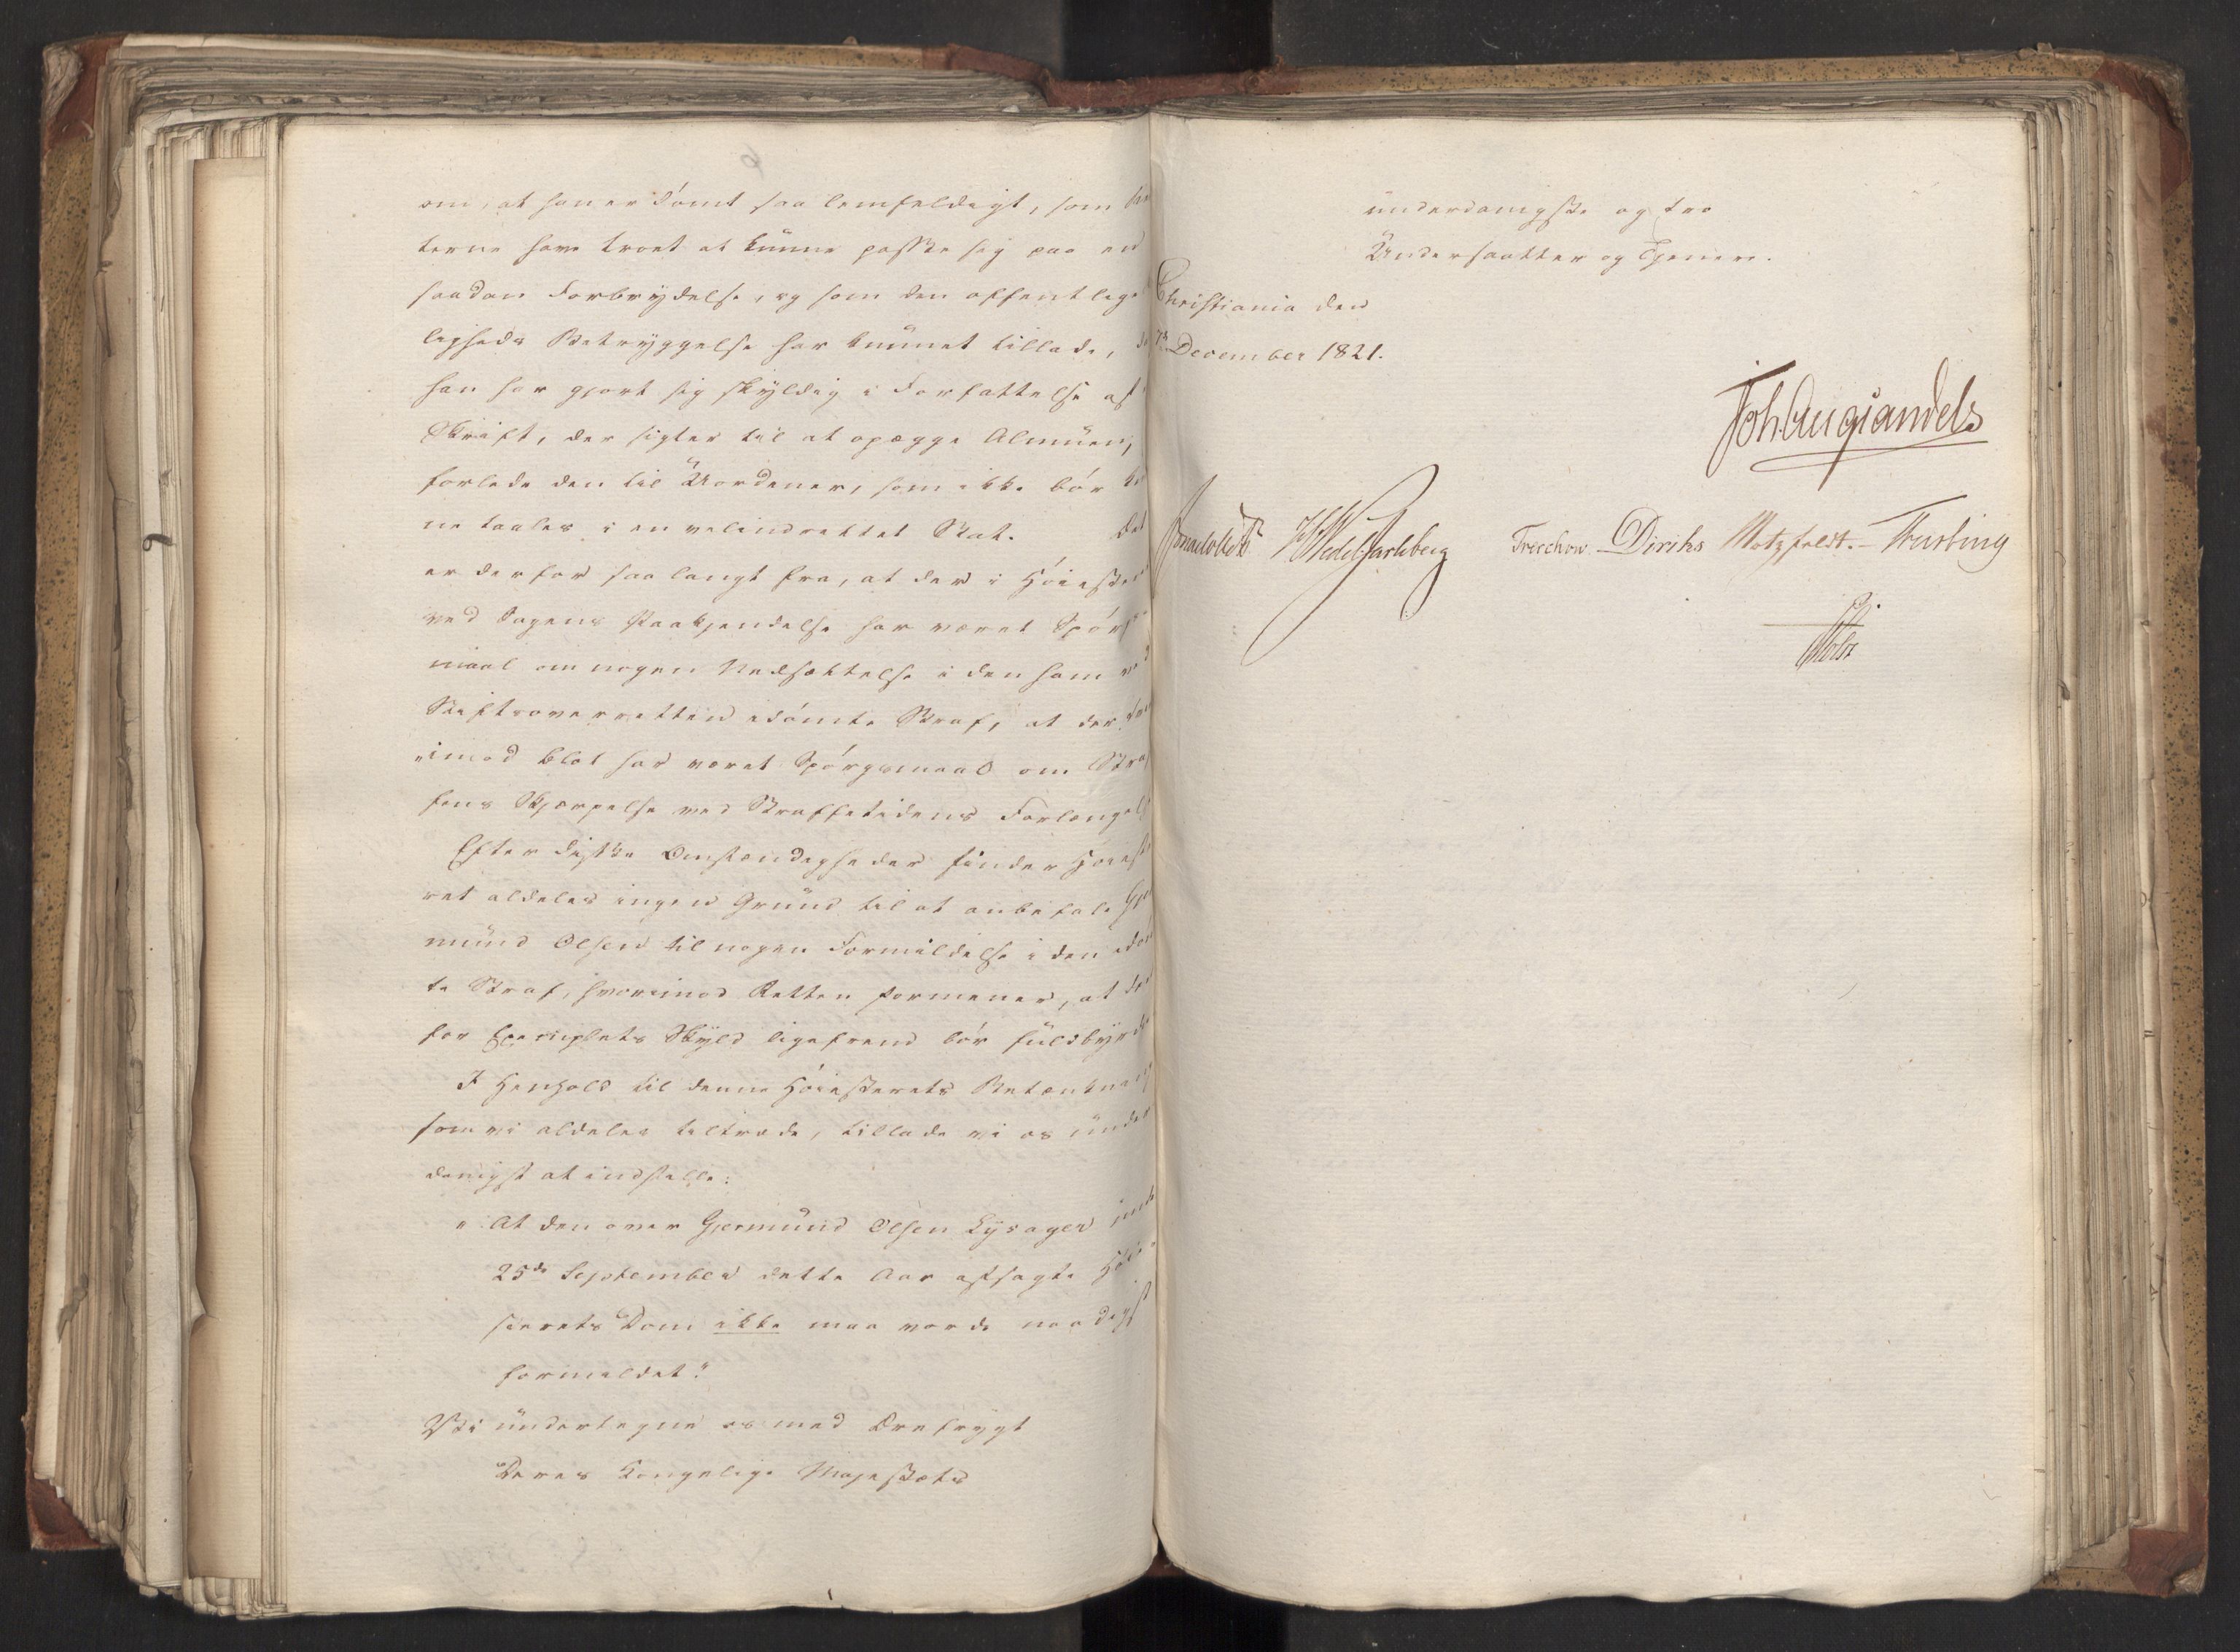 om, at han er dömt saa lemfeldigt, som
terne have troet at kunne passe sig paa en
saadan Forbrydelse, og som den offentlige
ligheds Betryggelse har kunnet tillade,
han har gjort sig skyldig i Forfattelse af
Skrift, der sigter til at opægge Almuen,
forlede den til Uordener, som ikke bör
ne taales i en velindrettet Stat. Det
er derfor saa langt fra, at der i Höieste
ved Sagens Paakjendelse har været Spörs
maal om nogen Nedsættelse i den ham ved
Stiftsoverretten idömte Straf, at der
imod blot har været Spörgsmaal om Straf
fens Skjærpelse ved Straffetidens Forlængelse
Efter disse Omstændigheder finder Höieste
ret aldeles ingen Grund til at anbefale Gjer
mund Olsen til nogen Formildelse i den idöm
te Straf, hvorimod Retten formener, at den
for Exemplets Skyld ligefrem bör fuldbyrdes
I Henhold til denne Höiesterets Betænkning
som vi aldeles tiltræde, tillade vi os under
danigst at indstille:
"At den over Gjermund Olsen Lysager
25de September dette Aar afsagte Höie
sterets Dom ikke maa vorde naadigst
formildet."
Vi undertegne os med Ærefrygt
Deres Kongelige Majestæts
underdanigste og tro
Undersaatter og Tjenere.
Christiania den
December 1821.
Joh. Aug. Sandels
WedelJarlsberg Treschow Diriks Motzfeldt. Fasting
Holst